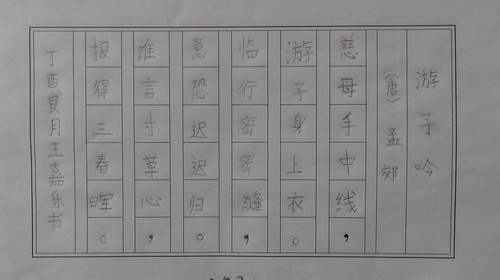 游子吟
（唐）孟郊
慈母手中线，
游子身上衣。
临行密密缝，
意恐迟迟归。
谁言寸草心，
报得三春晖。
丁酉良月王嘉乐书